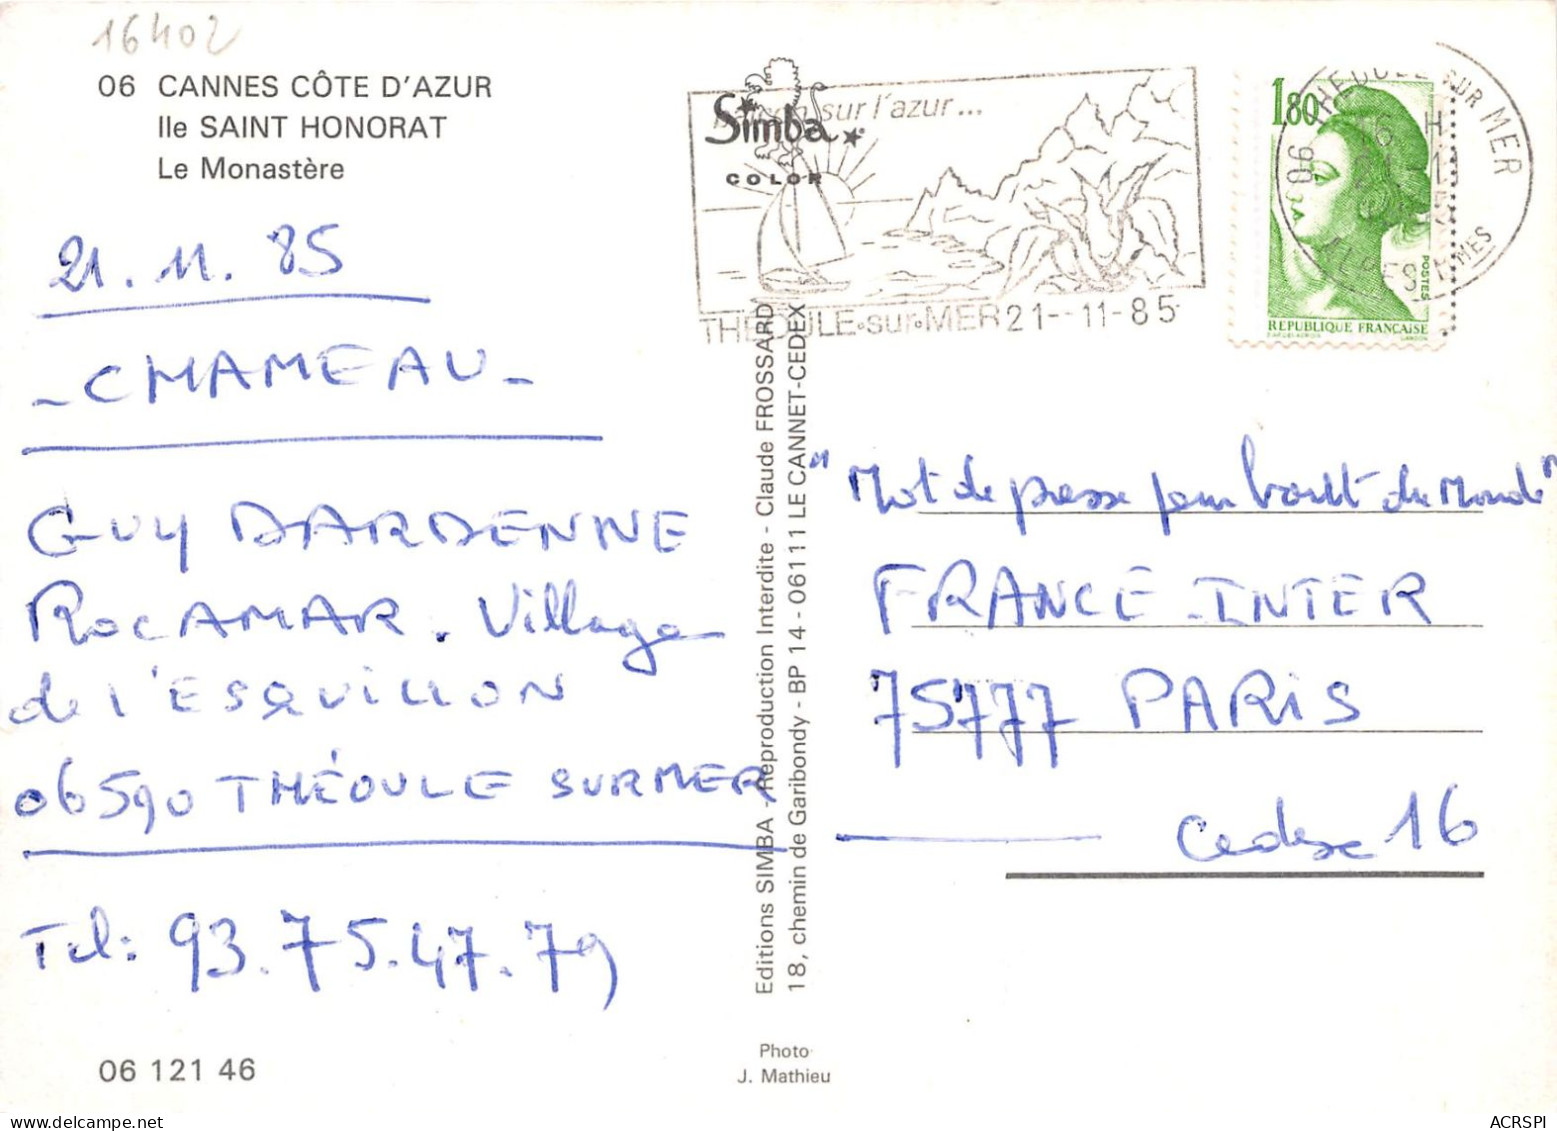 16402
06 CANNES CÔTE D'AZUR
Ile SAINT HONORAT
Le Monastère
21.11.85
- CHAMEAU -
GUY DARDENNE
ROCAMAR. Village
de L'ESQUILLON
06590 THÉOULE SUR MER
Tel: 93.75.47.79
06 121 46
Simba
COLOR
sur l'azur...
THEOULE-sur-MER 21--11-85
Editions SIMBA - Reproduction Interdite - Claude FROSSARD
18, chemin de Garibondy - BP 14 - 06111 LE CANNET-CEDEX
Photo
J. Mathieu
1,80
POSTES
REPUBLIQUE FRANÇAISE
GANDON
06 THEOULE SUR MER
16 H
ALPES-MMES
"Mot de passe pour bout du Monde"
FRANCE-INTER
75777 PARIS
Cedex 16
ACRSPI